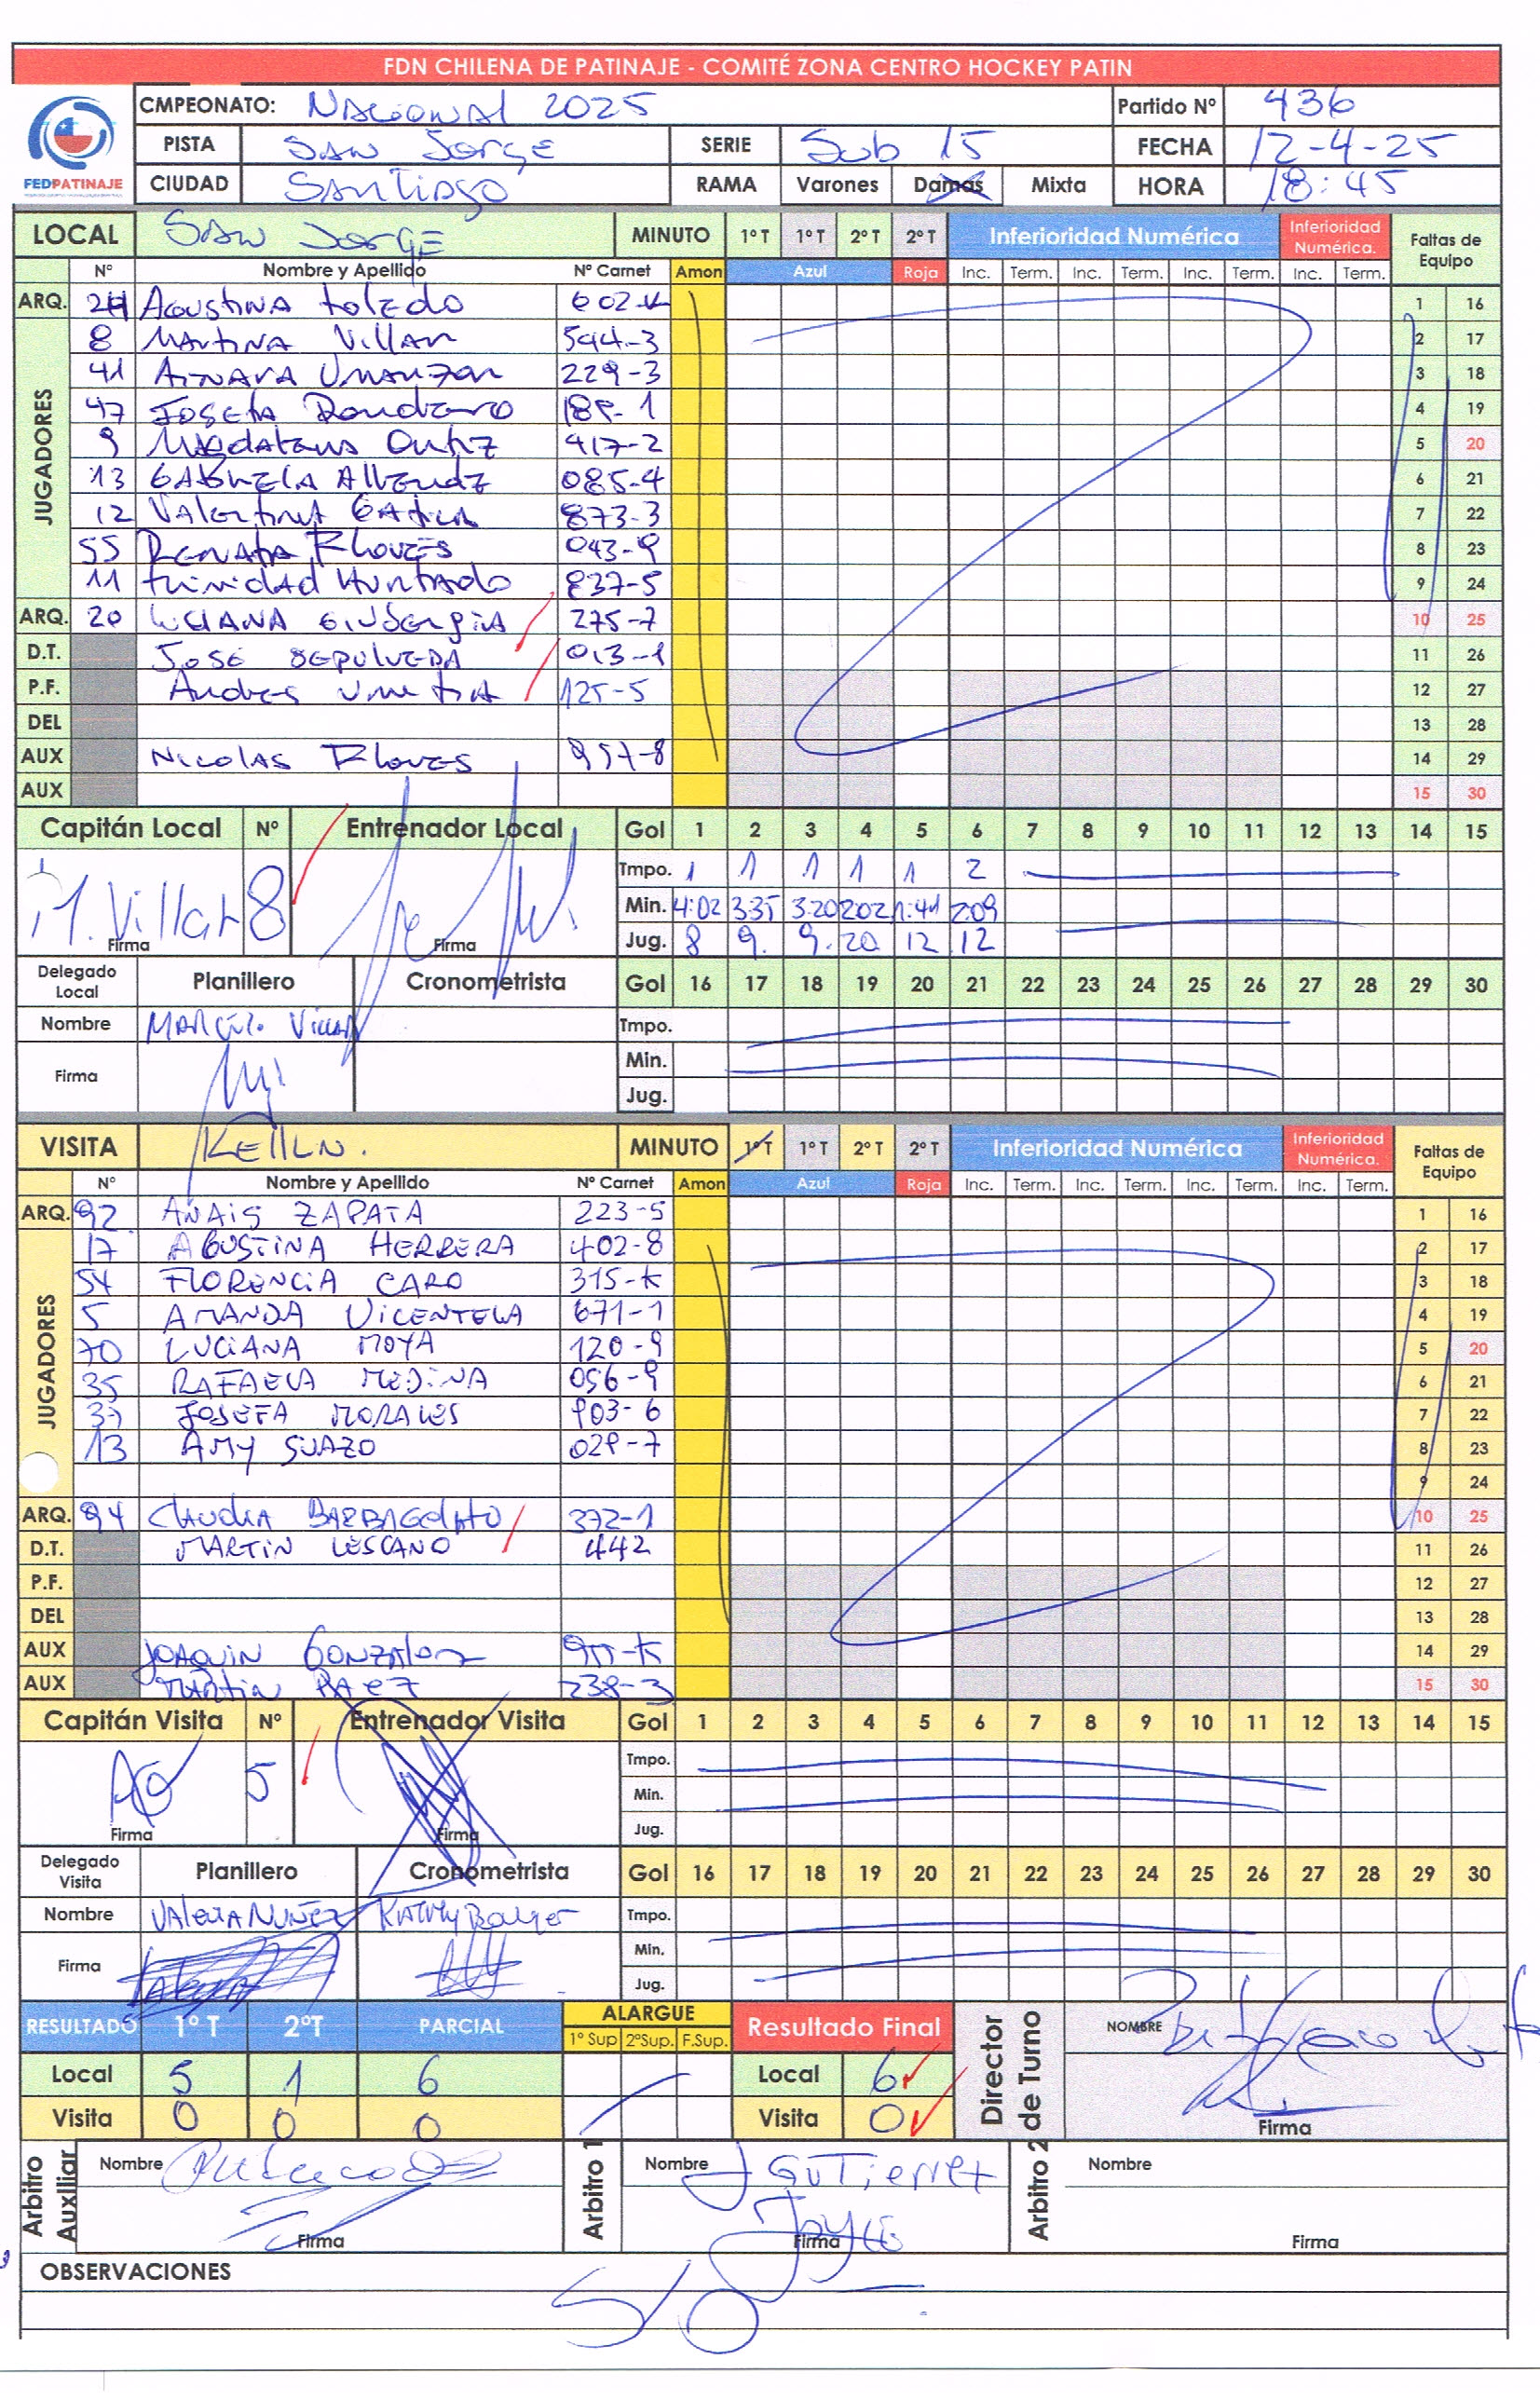 FDN CHILENA DE PATINAJE - COMITÉ ZONA CENTRO HOCKEY PATIN
FEDPATINAJE
CMPEONATO: NACIONAL 2025 Partido Nº 436
PISTA SAN JORGE SERIE Sub 15 FECHA 12-4-25
CIUDAD SANTIAGO RAMA Varones Damas Mixta HORA 18:45
LOCAL SAN JORGE MINUTO 1º T 1º T 2º T 2º T Inferioridad Numérica Inferioridad Numérica. Faltas de Equipo
Nº Nombre y Apellido Nº Carnet Amon Azul Roja Inc. Term. Inc. Term. Inc. Term. Inc. Term.
ARQ. Agustina Toledo 602-K 1 16
JUGADORES
8 Martina Villar 544-3 2 17
41 Ainara Umanzor 229-3 3 18
47 Josefa 185-1 4 19
9 Magdalena Ortiz 417-2 5 20
13 Gabriela Allendez 085-4 6 21
12 Valentina Gatica 873-3 7 22
55 Renata 043-9 8 23
11 Trinidad Hurtado 837-5 9 24
ARQ. 20 Luciana 275-7 10 25
D.T. José Sepúlveda 013-1 11 26
P.F. Andres Urrutia 125-5 12 27
DEL 13 28
AUX Nicolas 957-8 14 29
AUX 15 30
Capitán Local Nº Entrenador Local Gol 1 2 3 4 5 6 7 8 9 10 11 12 13 14 15
Tmpo. 1 1 1 1 1 2
M. Villar 8 Min. 4:02 3:35 3:20 2:02 1:41 2:09
Firma Firma Jug. 8 9. 9. 20 12 12
Delegado Local Planillero Cronometrista Gol 16 17 18 19 20 21 22 23 24 25 26 27 28 29 30
Nombre Marcelo Villar Tmpo.
Firma Min.
Jug.
VISITA KEILLN. MINUTO 1º T 1º T 2º T 2º T Inferioridad Numérica Inferioridad Numérica. Faltas de Equipo
Nº Nombre y Apellido Nº Carnet Amon Azul Roja Inc. Term. Inc. Term. Inc. Term. Inc. Term.
ARQ. 92 ANAIS ZAPATA 223-5 1 16
JUGADORES
17 AGUSTINA HERRERA 402-8 2 17
54 FLORENCIA CARO 315-K 3 18
5 AMANDA VICENTELA 671-1 4 19
70 LUCIANA MOYA 120-9 5 20
35 RAFAELA MEDINA 056-9 6 21
37 JOSEFA MORALES 903-6 7 22
13 AMY SUAZO 029-7 8 23
9 24
ARQ. 94 Claudia BARBAGELATO 372-1 10 25
D.T. MARTIN LESCANO 442 11 26
P.F. 12 27
DEL 13 28
AUX JOAQUIN Gonzalez 955-K 14 29
AUX MARTIN PAEZ 238-3 15 30
Capitán Visita Nº Entrenador Visita Gol 1 2 3 4 5 6 7 8 9 10 11 12 13 14 15
Tmpo.
5 Min.
Firma Firma Jug.
Delegado Visita Planillero Cronometrista Gol 16 17 18 19 20 21 22 23 24 25 26 27 28 29 30
Nombre VALERIA NUÑEZ Tmpo.
Firma Min.
Jug.
RESULTADO 1º T 2ºT PARCIAL ALARGUE Resultado Final Director de Turno NOMBRE
1º Sup 2ºSup. F.Sup.
Local 5 1 6 Local 6
Visita 0 0 0 Visita 0 Firma
Arbitro Auxiliar Nombre Arbitro 1 Nombre J Gutierrez Arbitro 2 Nombre
Firma Firma Joyce Firma
OBSERVACIONES
S/O